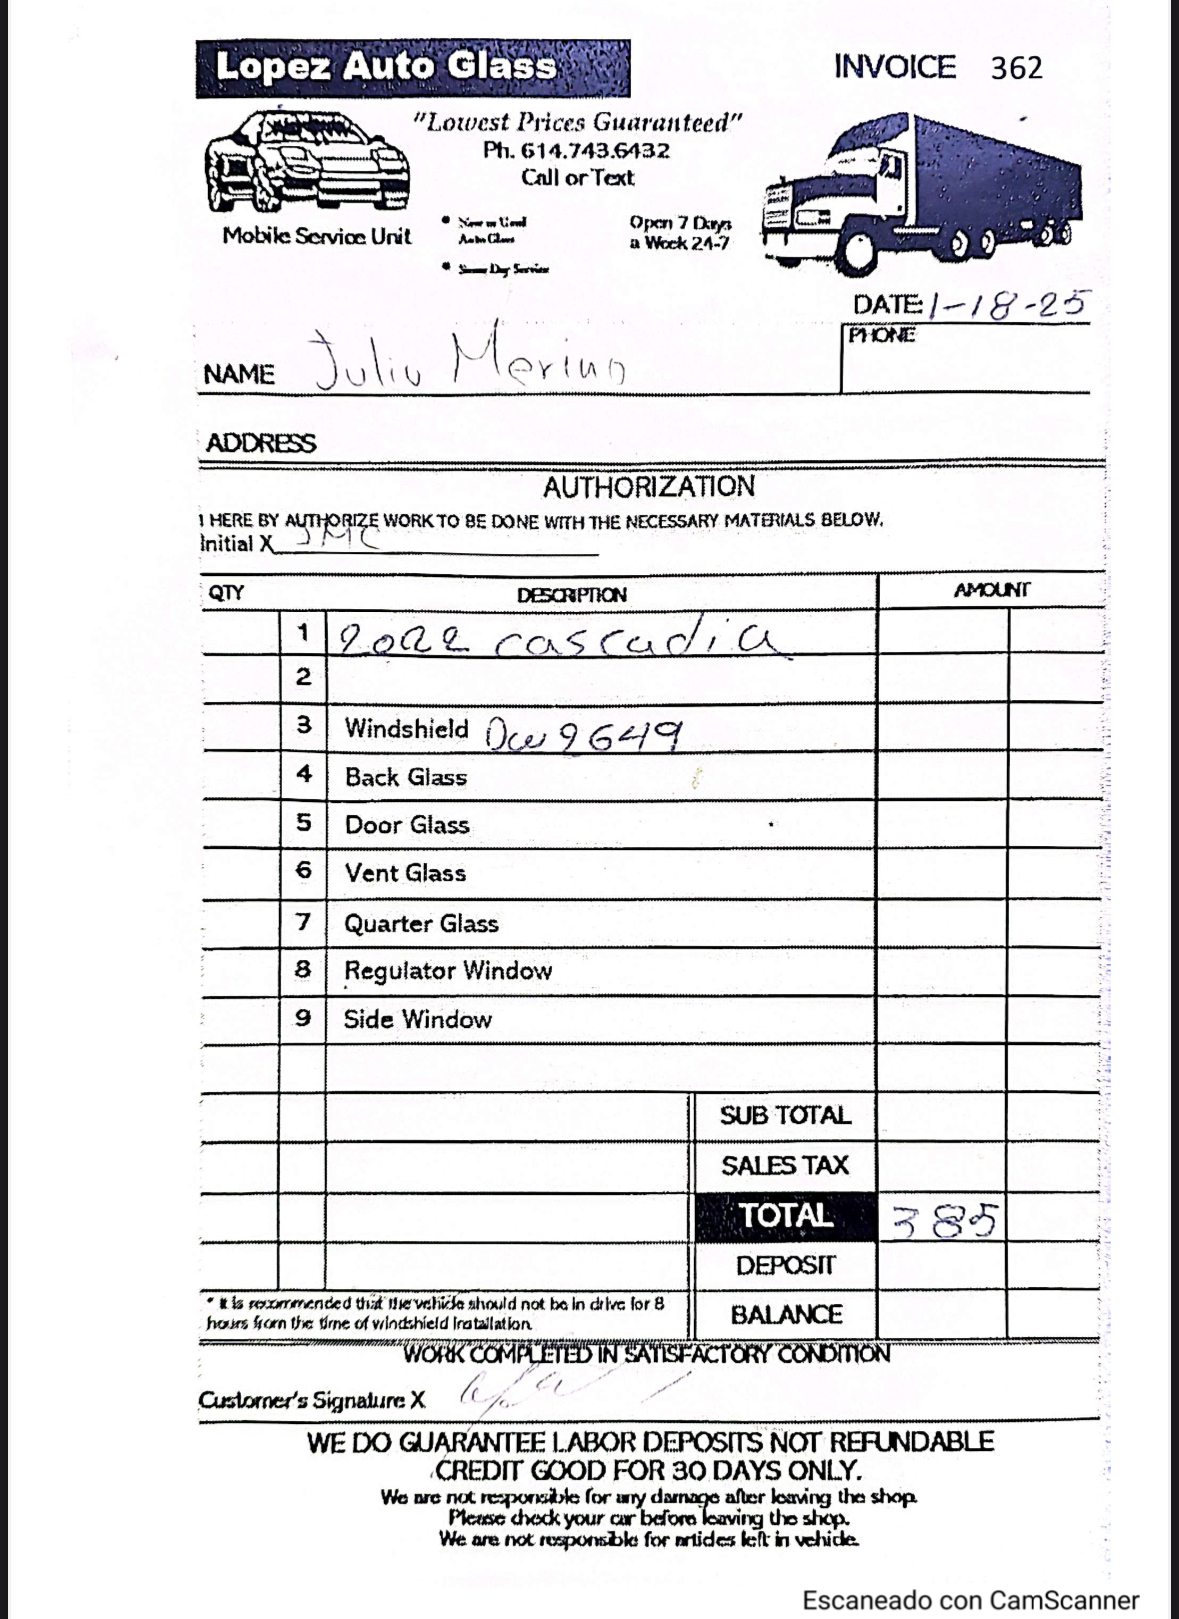 Lopez Auto Glass
INVOICE 362
"Lowest Prices Guaranteed"
Ph. 614.743.6432
Call or Text
Mobile Service Unit
• New or Used
Auto Glass
• Same Day Service
Open 7 Days
a Week 24-7
DATE: 1-18-25
PHONE
NAME Julio Merino
ADDRESS
AUTHORIZATION
I HERE BY AUTHORIZE WORK TO BE DONE WITH THE NECESSARY MATERIALS BELOW.
Initial X JMC
QTY DESCRIPTION AMOUNT
1 2022 cascadia
2
3 Windshield Dw2649
4 Back Glass
5 Door Glass
6 Vent Glass
7 Quarter Glass
8 Regulator Window
9 Side Window
SUB TOTAL
SALES TAX
TOTAL 385
DEPOSIT
* It is recommended that the vehicle should not be in drive for 8
hours from the time of windshield installation.
BALANCE
WORK COMPLETED IN SATISFACTORY CONDITION
Customer's Signature X
WE DO GUARANTEE LABOR DEPOSITS NOT REFUNDABLE
CREDIT GOOD FOR 30 DAYS ONLY.
We are not responsible for any damage after leaving the shop.
Please check your car before leaving the shop.
We are not responsible for articles left in vehicle.
Escaneado con CamScanner